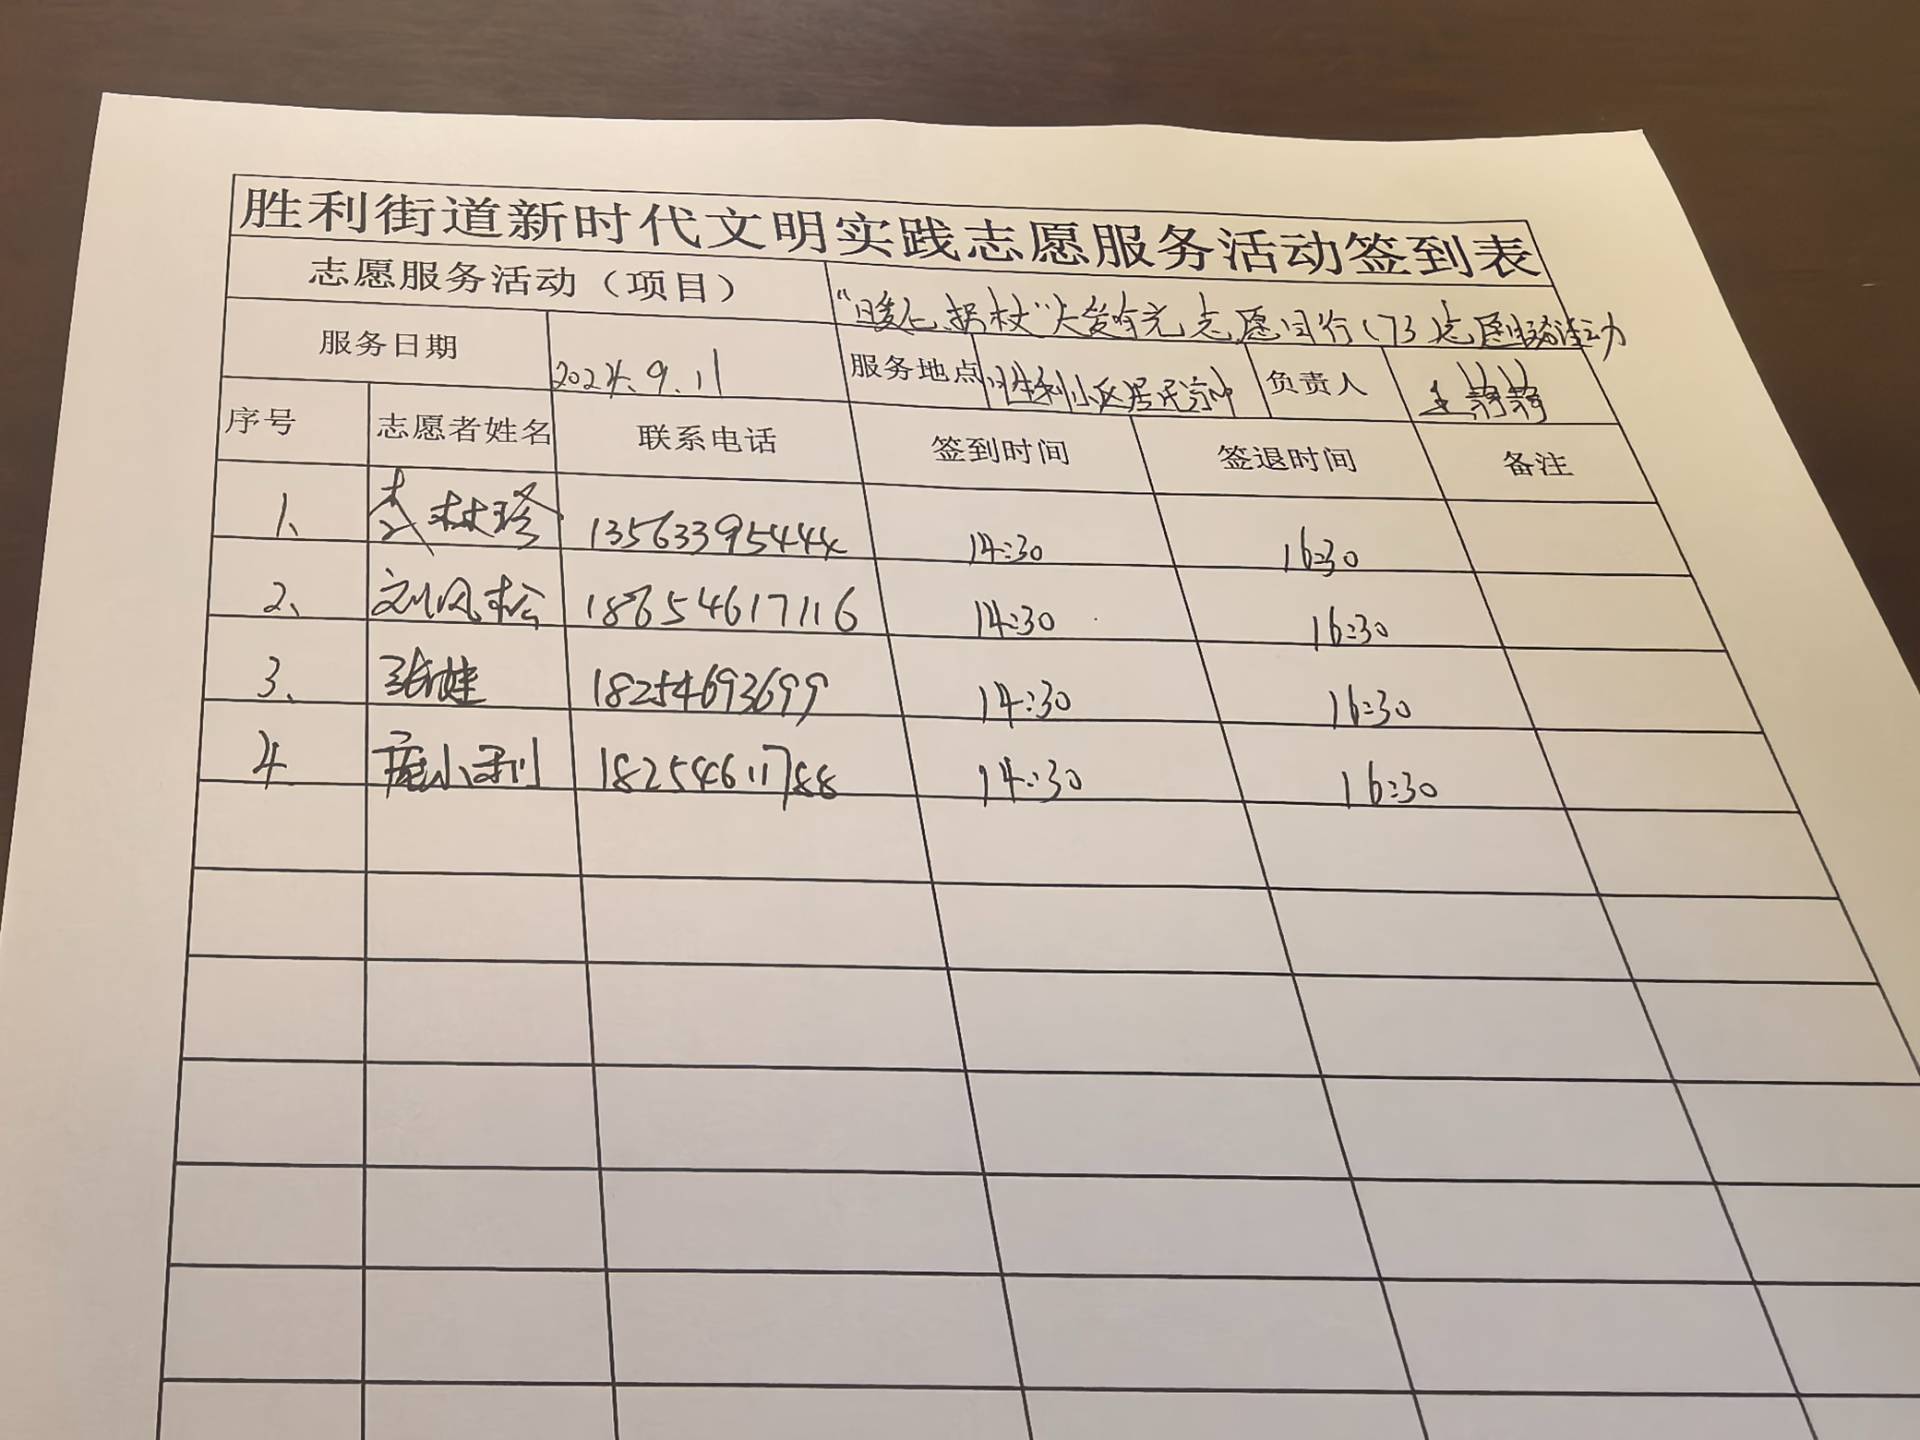 胜利街道新时代文明实践志愿服务活动签到表
志愿服务活动（项目） “暖心拐杖”大爱有光 志愿同行（73）志愿服务活动
服务日期 2024.9.11 服务地点 胜利小区居民家中 负责人 王
序号 志愿者姓名 联系电话 签到时间 签退时间 备注
1、 李林 13563395444 14:30 16:30
2、 刘凤松 18654617116 14:30 16:30
3、 张婕 18254693699 14:30 16:30
4 小利 18254611788 14:30 16:30